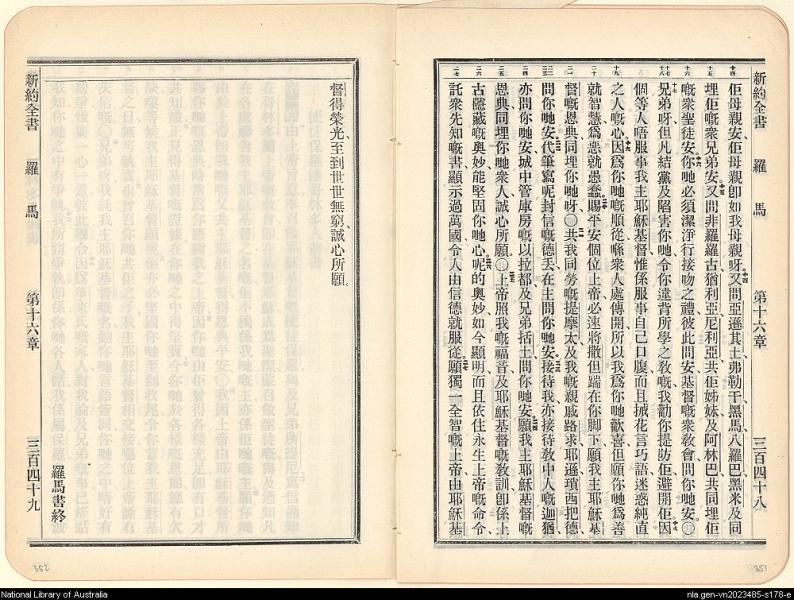 新約全書 羅馬 第十六章 三百四十八
佢母親安佢母親卽如我母親呀又問亞遜其土弗勒干黑馬八羅巴黑米及同
埋佢嘅衆兄弟安又問非羅羅古猶利亞尼利亞共佢姊妹及阿林巴共同埋佢
嘅衆聖徒安你哋必須潔淨行接吻之禮彼此問安基督嘅衆敎會問你哋安〇
兄弟呀但凡結黨及陷害你哋令你違背所學之敎嘅我勸你提防佢避開佢因
個等人唔服事我主耶穌基督惟係服事自己口腹而且搣花言巧語迷惑純直
之人嘅心因爲你哋嘅順從喺衆人處傳開所以我爲你哋歡喜但願你哋爲善
就智慧爲惡就愚蠢賜平安個位上帝必速將撒但踹在你脚下願我主耶穌基
督嘅恩典同埋你哋呀〇共我同勞嘅提摩太及我嘅親戚路求耶遜瑣西把德
問你哋安代筆寫呢封信嘅德丟在主問你哋安接待我亦接待敎中人嘅迦猶
亦問你哋安城中管庫房嘅以拉都及兄弟括土問你哋安願我主耶穌基督嘅
恩典同埋你哋衆人誠心所願〇上帝照我嘅福音及耶穌基督嘅敎訓卽係上
古隱藏嘅奥妙能堅固你哋心呢的奥妙如今顯明而且依住永生上帝嘅命令
託衆先知嘅書顯示過萬國令人由信德就服從願獨一全智嘅上帝由耶穌基
督得榮光至到世世無窮誠心所願
羅馬書終
新約全書 羅馬 第十六章 三百四十九
352
351
National Library of Australia
nla.gen-vn2023485-s178-e